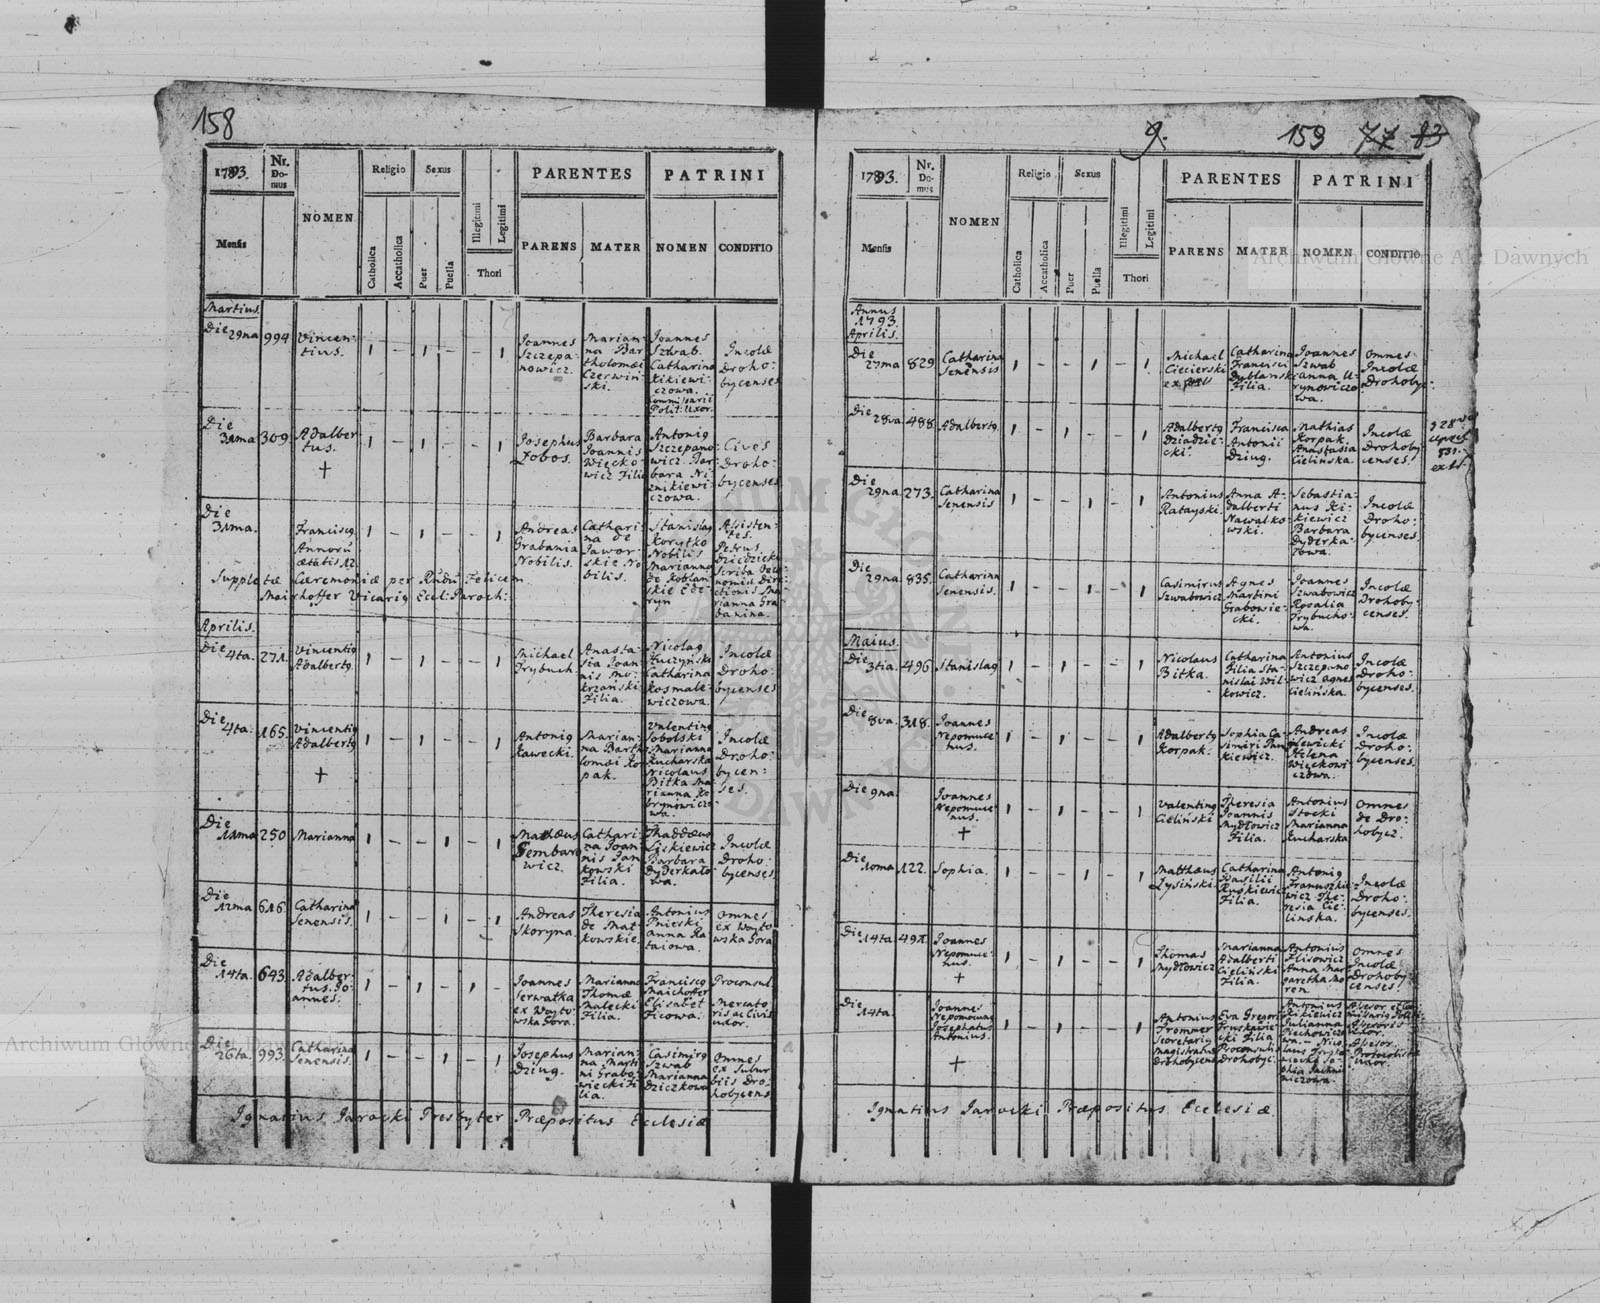 158
1793.
Nr. Domus
NOMEN
Religio
Sexus
PARENTES
PATRINI
Mensis
Catholica
Accatholica
Puer
Puella
Illegitimi
Legitimi
Thori
PARENS
MATER
NOMEN
CONDITIO
Martius.
Die 29na 994 Vincentius. 1 - 1 - - 1
Joannes Szczepanowicz.
Marianna Bartholomæi Czerwinski.
Joannes Szwab. Catharina Kikiewiczowa. Commissarii Polit: Uxor.
Incolæ Drohobycenses
Die 31ma 309. Adalbertus. + 1 - 1 - - 1
Josephus Łobos.
Barbara Joannis Więckowicz Filia
Antoniq Szczepanowicz Barbara
Cives Drohobycenses
Die 31ma. Franciscq Annorū ætatis 12 1 - 1 - - 1
Andreas Grabania Nobilis.
Catharina de Jaworskie Nobilis.
Stanislaq Korytko Nobilis Marianna de
Assistentes. Petrus
Suppletæ Ceremoniæ per Rndū Felicem
Maichoffer Vicariq Eccl: Paroch:
Aprilis.
Die 4ta. 271. Vincentiq Adalbertq 1 - 1 - - 1
Michael Trybuch
Anastasia Joannis Filia.
Nicolaq Huczyński Catharina Kosmalewiczowa.
Incolæ Drohobycenses
Die 4ta. 165. Vincentiq Adalbertq + 1 - 1 - - 1
Antoniq Kawecki.
Marianna Bartholomæi Korpak.
Valentinq Sobolski Marianna Kucharska Nicolaus Bitka Marianna
Incolæ Drohobycenses.
Die 11ma 250 Marianna 1 - - 1 - 1
Mathæus Sembarowicz.
Catharina Joannis Jankowski Filia.
Thaddæus Liskiewicz Barbara Dyderkałowa.
Incolæ Drohobycenses
Die 12ma 616. Catharina Senensis. 1 - - 1 - 1
Andreas Skoryna.
Theresia de Matkowskie.
Antonius Pnieski Anna Rataiowa.
Omnes ex Woytowska Gora
Die 14ta. 643. Adalbertus. Joannes. 1 - 1 - 1 -
Joannes Serwatka ex Woytowska Gora.
Marianna Thomæ Malecki Filia.
Franciscq Maichoffer Elisabet Ficowa.
Proconsul. Mercatoris ac Civis uxor.
Die 26ta. 993. Catharina Senensis. 1 - - 1 - 1
Josephus Dziug.
Marianna Martini Grabowiecki Filia.
Casimirq Szwab Marianna Dziczkowa
Omnes ex Suburbiis Drohobycens
Ignatius Jarocki Presbyter Præpositus Ecclesiæ
9. 159 77 83
1793.
Nr. Domus
NOMEN
Religio
Sexus
PARENTES
PATRINI
Mensis
Catholica
Accatholica
Puer
Puella
Illegitimi
Legitimi
Thori
PARENS
MATER
NOMEN
CONDITIO
Annus 1793.
Aprilis.
Die 27ma 829. Catharina Senensis 1 - - 1 - 1
Michael Ciecierski
Catharina Francisci Dublanski Filia.
Joannes Szwab Anna
Omnes Incolæ Drohobyc:
Die 28va. 488. Adalbertq. 1 - 1 - - 1
Adalbertq Dziadzicki.
Francisca Antonii Dziug.
Mathias Korpak. Anastasia Cielińska.
Incolæ Drohobycenses.
Die 29na. 273. Catharina Senensis 1 - - 1 - 1
Antonius Ratayski.
Anna Adalberti Nawalkowski.
Sebastianus Kikiewicz Barbara Dyderkałowa.
Incolæ Drohobycenses.
Die 29na. 835. Catharina Senensis. 1 - - 1 - 1
Casimirus Szwabowicz
Agnes Martini Grabowiecki.
Joannes Szwabowicz Rosalia Trybuchowa.
Incolæ Drohobycenses.
Maius.
Die 3tia. 496. Stanislaq 1 - 1 - - 1
Nicolaus Bitka.
Catharina Filia Stanislai Wilkowicz.
Antonius Szczepanowicz Agnes Cielińska.
Incolæ Drohobycenses.
Die 8va. 318. Joannes Nepomucenus. 1 - 1 - - 1
Adalbertq Korpak.
Sophia Casimiri
Andreas Helena Więckowiczowa.
Incolæ Drohobycenses.
Die 9na. Joannes Nepomucenus. + 1 - 1 - - 1
Valentinq Cieliński
Theresia Joannis Mydłowicz Filia.
Antonius Stocki Marianna Kucharska
Omnes de Drohobycz.
Die 10ma 122. Sophia. 1 - - 1 - 1
Matthæus Łysiński.
Catharina Basilii Ruskiewicz Filia.
Antoniq Theresia Cielinska.
Incolæ Drohobycenses.
Die 14ta. Joannes Nepomucenus. + 1 - 1 - - 1
Thomas Mydłowicz
Marianna Adalberti Cieliński Filia.
Antonius Flisowicz Anna Margaretha Moren.
Omnes Incolæ Drohobycenses.
Die 14ta. Joannes Nepomucenus Josephatus Antonius. + 1 - 1 - - 1
Antonius Fromner Secretariq Magistratus Drohobycens
Eva Gregorii Pruskawiecki Filia Proconsulis Drohobyc:
Antonius Kikiewicz Julianna Piechowiczowa.
Ignatius Jarocki Præpositus Ecclesiæ.
Archiwum Główne Akt Dawnych
Archiwum Główne Akt Dawnych